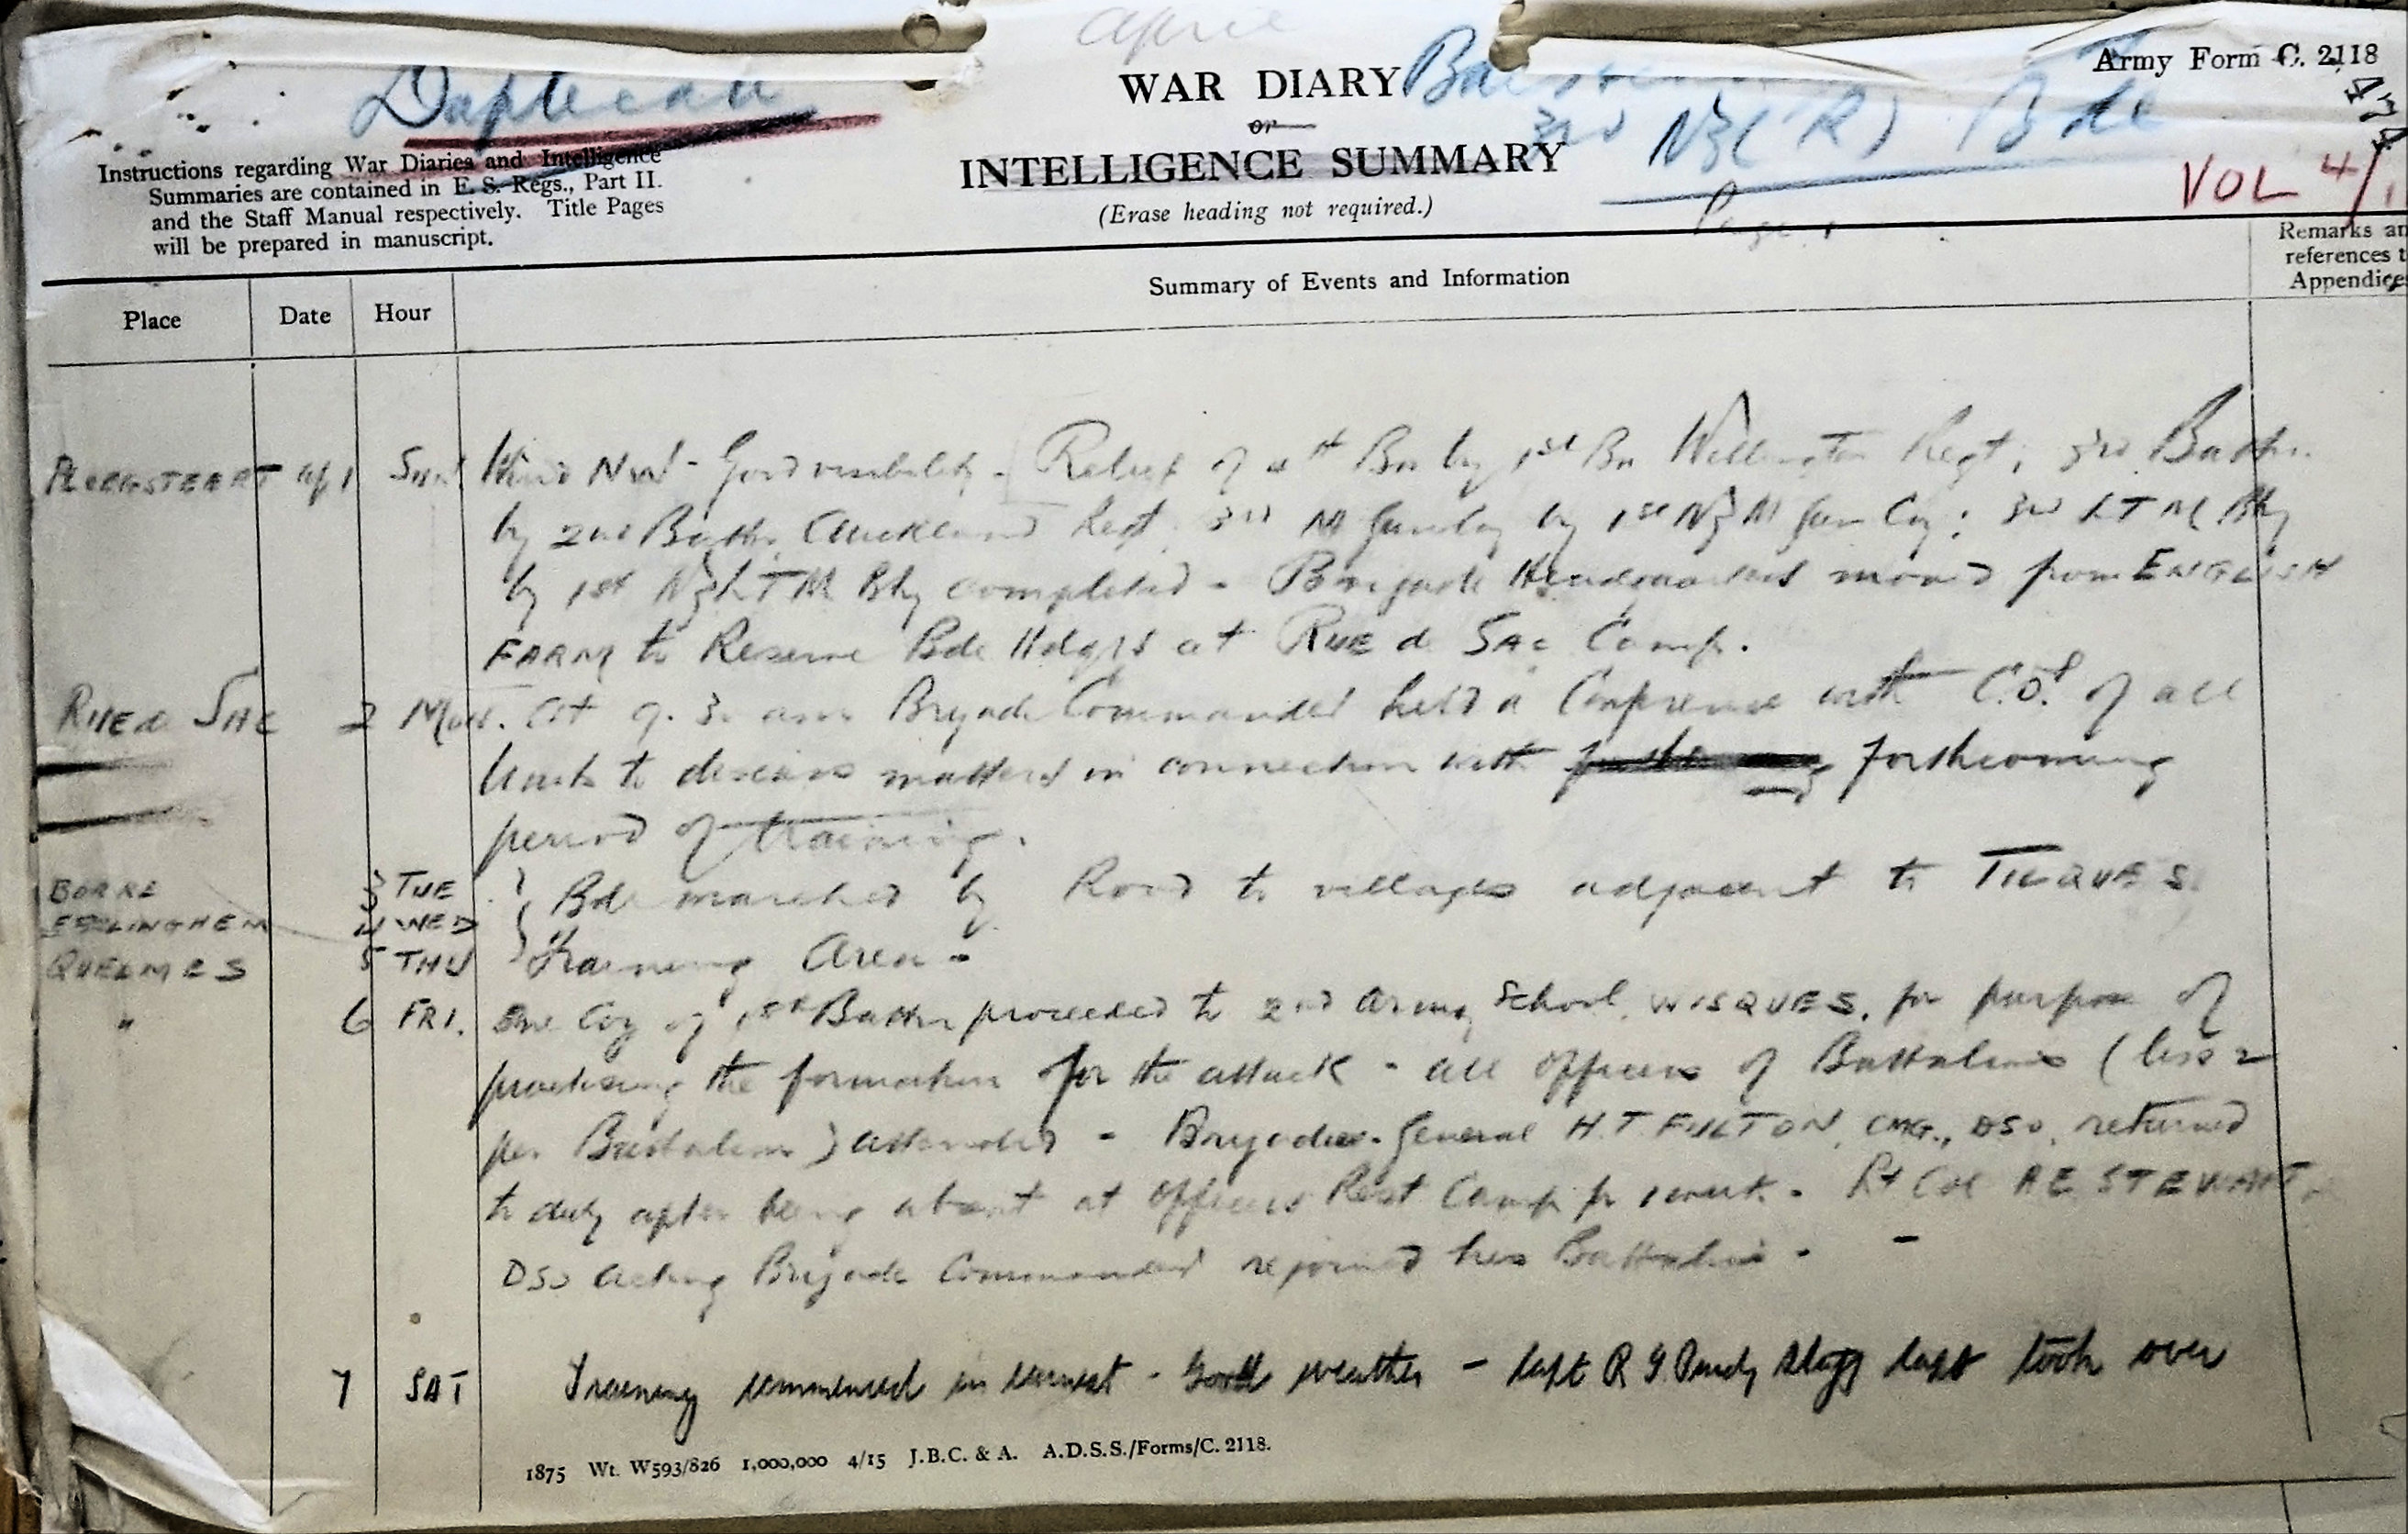 April
WAR DIARY
Army Form C. 2118
Duplicate
or
3rd NZ (R) Bde
INTELLIGENCE SUMMARY
VOL 4/1
(Erase heading not required.)
Page 1
Instructions regarding War Diaries and Intelligence
Summaries are contained in F. S. Regs., Part II.
and the Staff Manual respectively. Title Pages
will be prepared in manuscript.
Place Date Hour Summary of Events and Information
Remarks an
references t
Appendices
PLOEGSTEERT ap 1 Sun Wind NW - Good visibility - Relief of 4th Bn by 1st Bn Wellington Regt; 3rd Battn
by 2nd Battn Auckland Regt, 3rd M Gun Coy by 1st NZ M Gun Coy; 3rd LTM Bty
by 1st NZ LTM Bty completed - Brigade Headquarters moved from ENGLISH
FARM to Reserve Bde Hdqrs at RUE de SAC Camp.
RUE de SAC 2 Mon. At 9.30 am Brigade Commander held a Conference with C.O.s of all
Units to discuss matters in connection with forthcoming
period of training.
BORRE 3 TUE Bde marched by Road to villages adjacent to TILQUES
EBBLINGHEM 4 WED
QUELMES 5 THU Training Area -
" 6 FRI. One Coy of 1st Battn proceeded to 2nd Army School, WISQUES, for purpose of
practising the formation for the attack - all Officers of Battalions (less 2
per Battalion) attended - Brigadier-General H.T. FULTON, CMG., DSO, returned
to duty after being absent at Officers Rest Camp for 1 week - Lt Col A.E. STEWART
DSO acting Brigade Commander rejoined his Battalion -
7 SAT Training commenced in earnest - Good weather - Capt R G Purdy Staff Capt took over
1875 Wt. W593/826 1,000,000 4/15 J.B.C. & A. A.D.S.S./Forms/C. 2118.